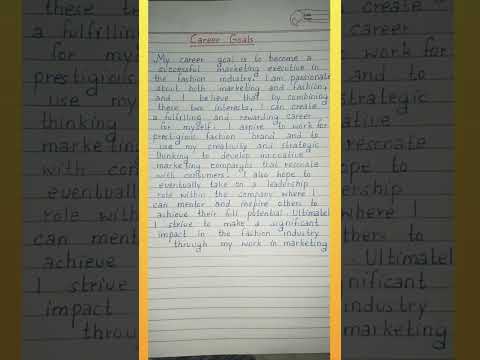 Career Goals
My career goal is to become a
successful marketing executive in
the fashion industry. I am passionate
about both marketing and fashion,
and I believe that by combining
these two interests, I can create
a fulfilling and rewarding career
for myself. I aspire to work for
prestigious fashion brand and to
use my creativity and strategic
thinking to develop innovative
marketing campaigns that resonate
with consumers. I also hope to
eventually take on a leadership
role within the company where I
can mentor and inspire others to
achieve their full potential. Ultimatel
I strive to make a significant
impact in the fashion industry
through my work in marketing